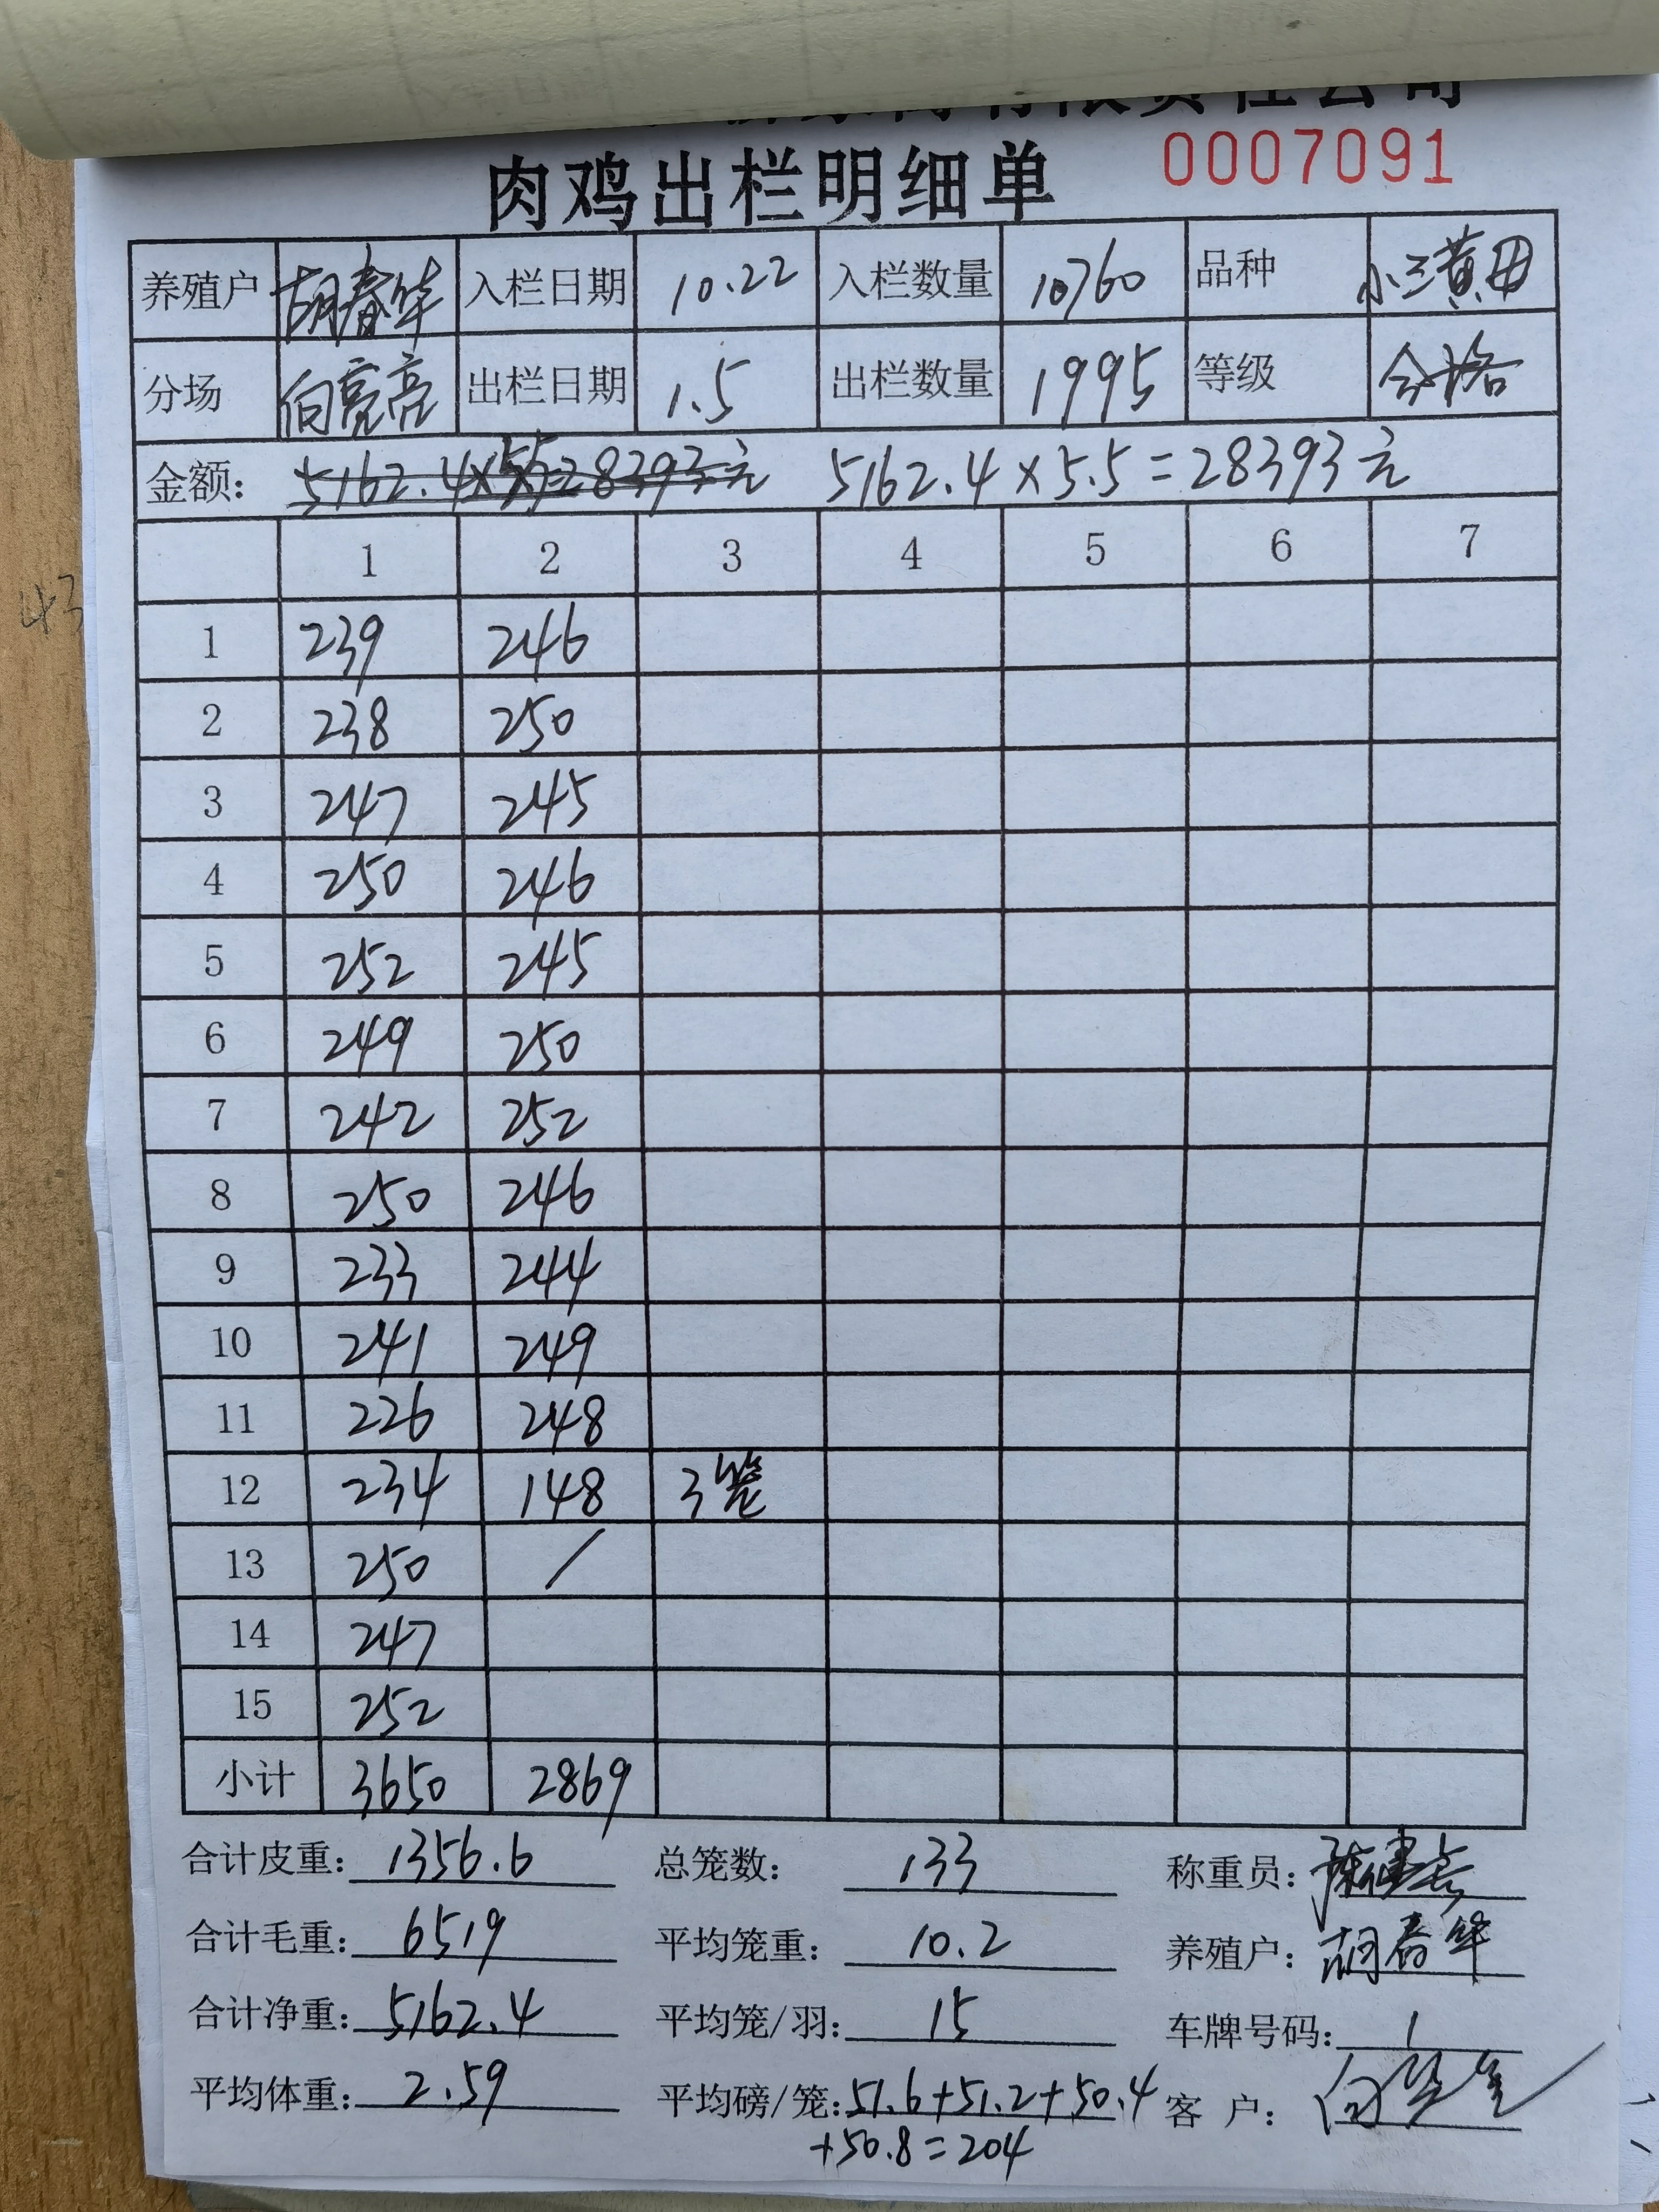 有限责任公司
肉鸡出栏明细单 0007091
养殖户 胡春华 入栏日期 10.22 入栏数量 10760 品种 小三黄母
分场 向亮亮 出栏日期 1.5 出栏数量 1995 等级 合格
金额: 5162.4×5.5=28393元 5162.4×5.5=28393元
1 2 3 4 5 6 7
1 239 246
2 238 250
3 247 245
4 250 246
5 252 245
6 249 250
7 242 252
8 250 246
9 233 244
10 241 249
11 226 248
12 234 148 3笼
13 250 /
14 247
15 252
小计 3650 2869
合计皮重: 1356.6 总笼数: 133 称重员:
合计毛重: 6519 平均笼重: 10.2 养殖户: 胡春华
合计净重: 5162.4 平均笼/羽: 15 车牌号码: 1
平均体重: 2.59 平均磅/笼: 51.6+51.2+50.4 客户:
+50.8=204
43